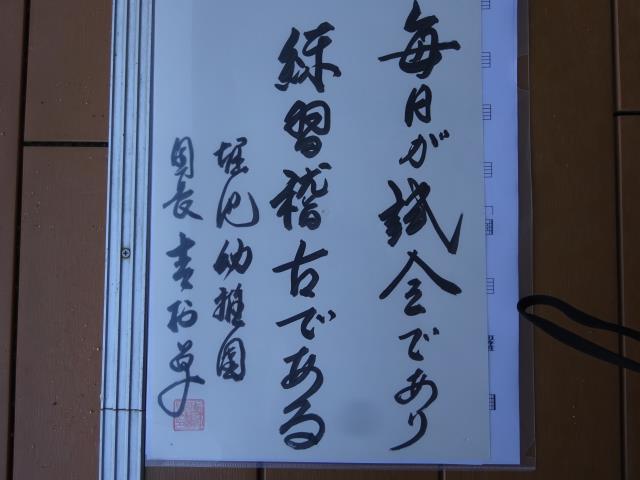 毎日が試合であり
練習稽古である
堀之内幼稚園
園長